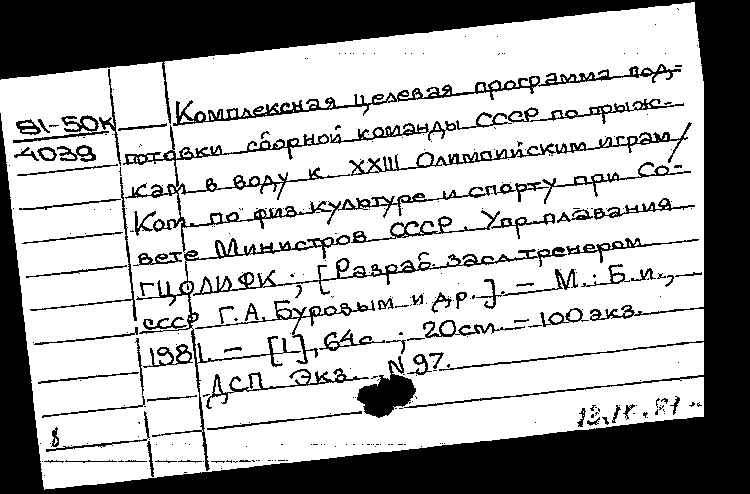 Комплексная целевая программа под-
81-50К
4039
готовки сборной команды СССР по прыж-
кам в воду к XXIII Олимпийским играм/
Ком. по физ. культуре и спорту при Со-
вете Министров СССР. Упр. плавания
ГЦОЛИФК ; [Разраб. засл. тренером
СССР Г.А. Буровым и др.]. – М. : Б.и.,
1981. – [1], 64с. ; 20см. – 100 экз.
ДСП Экз. N 97.